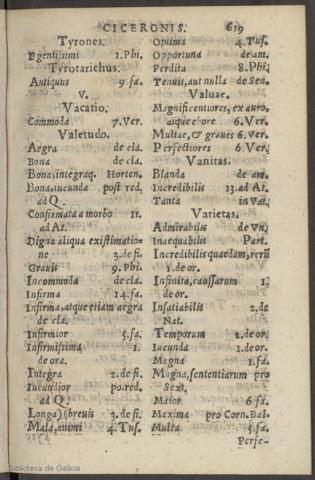 CICERONIS. 619
Tyrones.
Egentissimi 1. Phi.
Tyrotarichus.
Antiquus 9. fa.
V.
Vacatio.
Commoda 7. Ver.
Valetudo.
Aegra de cla.
Bona de cla.
Bona, integraq. Horten.
Bona, iucunda post red.
ad Q.
Confirmata a morbo 11.
ad At.
Digna aliqua existimatio=
ne 3. de fi.
Grauis 9. Phi.
Incommoda de cla.
Infirma 14. fa.
Infirma, atque etiam aegra
de cla.
Infirmior 5. fa.
Infirmissima 1.
de ora.
Integra 2. de fi.
Iucundior po. red.
ad Q.
Longa)(breuis 3. de fi.
Mala, animi 4. Tus.
Optima 4. Tus.
Opportuna de am.
Perdita 8. Phi.
Tenuis, aut nulla de Sen.
Valuae.
Magnificentiores, ex auro,
atque ebore 6. Ver.
Multae, & graues 6. Ver.
Perfectiores 6. Ver.
Vanitas.
Blanda de am.
Incredibilis 13. ad At.
Tanta in Vat.
Varietas.
Admirabilis de Vn.
Inaequabilis Part.
Incredibilis quaedam, rerū
1. de or.
Infinita, caussarum 1.
de or.
Insatiabilis 2. de
Nat.
Temporum 2. de or.
Iucunda 1. de or.
Magna 1. fa.
Magna, sententiarum pro
Sext.
Maior 6. fa.
Maxima pro Corn. Bal.
Multa 5. fa.
Perfe-
Biblioteca de Galicia